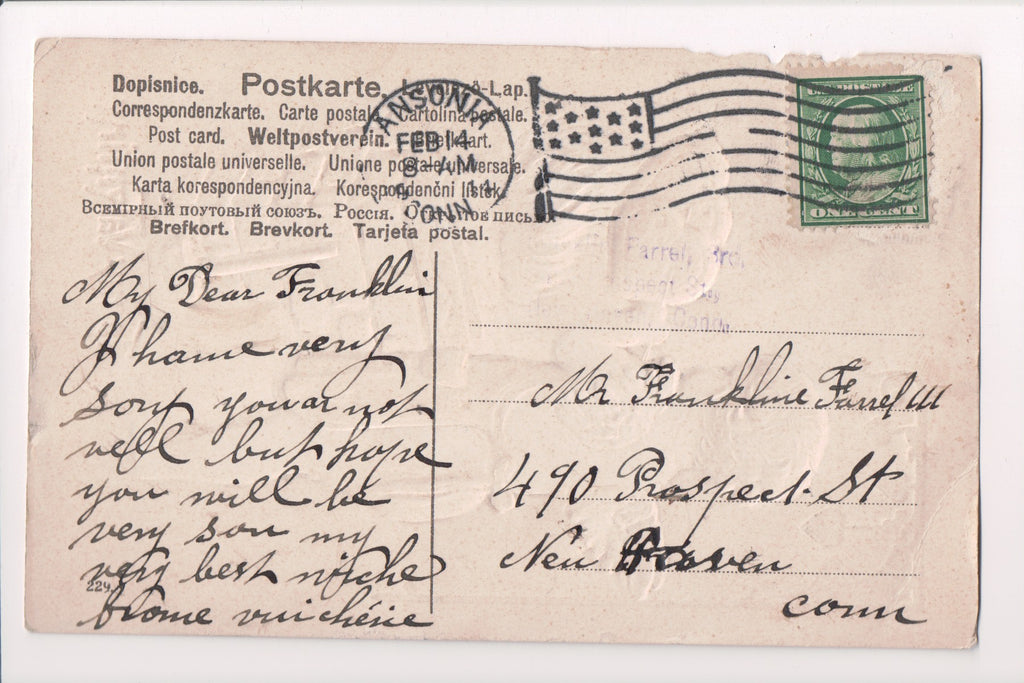 Dopisnice. Postkarte. -Lap.
Correspondenzkarte. Carte postale. Cartolina postale.
Post card. Weltpostverein. Briefkaart.
Union postale universelle. Unione postale universale.
Karta korespondencyjna. Korespondenční lístek.
Всемірный поутовый союзъ. Россія. Открытое письмо
Brefkort. Brevkort. Tarjeta postal.
ANSONIA
FEB 14
8-AM
11
CONN
ONE CENT
My Dear Franklin
I hame very
sory you ar not
vell but hope
you will be
very soon my
very best wiche
frome
229
Farrel, Bro.
Conn.
Mr Frankline Farrel III
490 Prospect. St
New Haven
conn